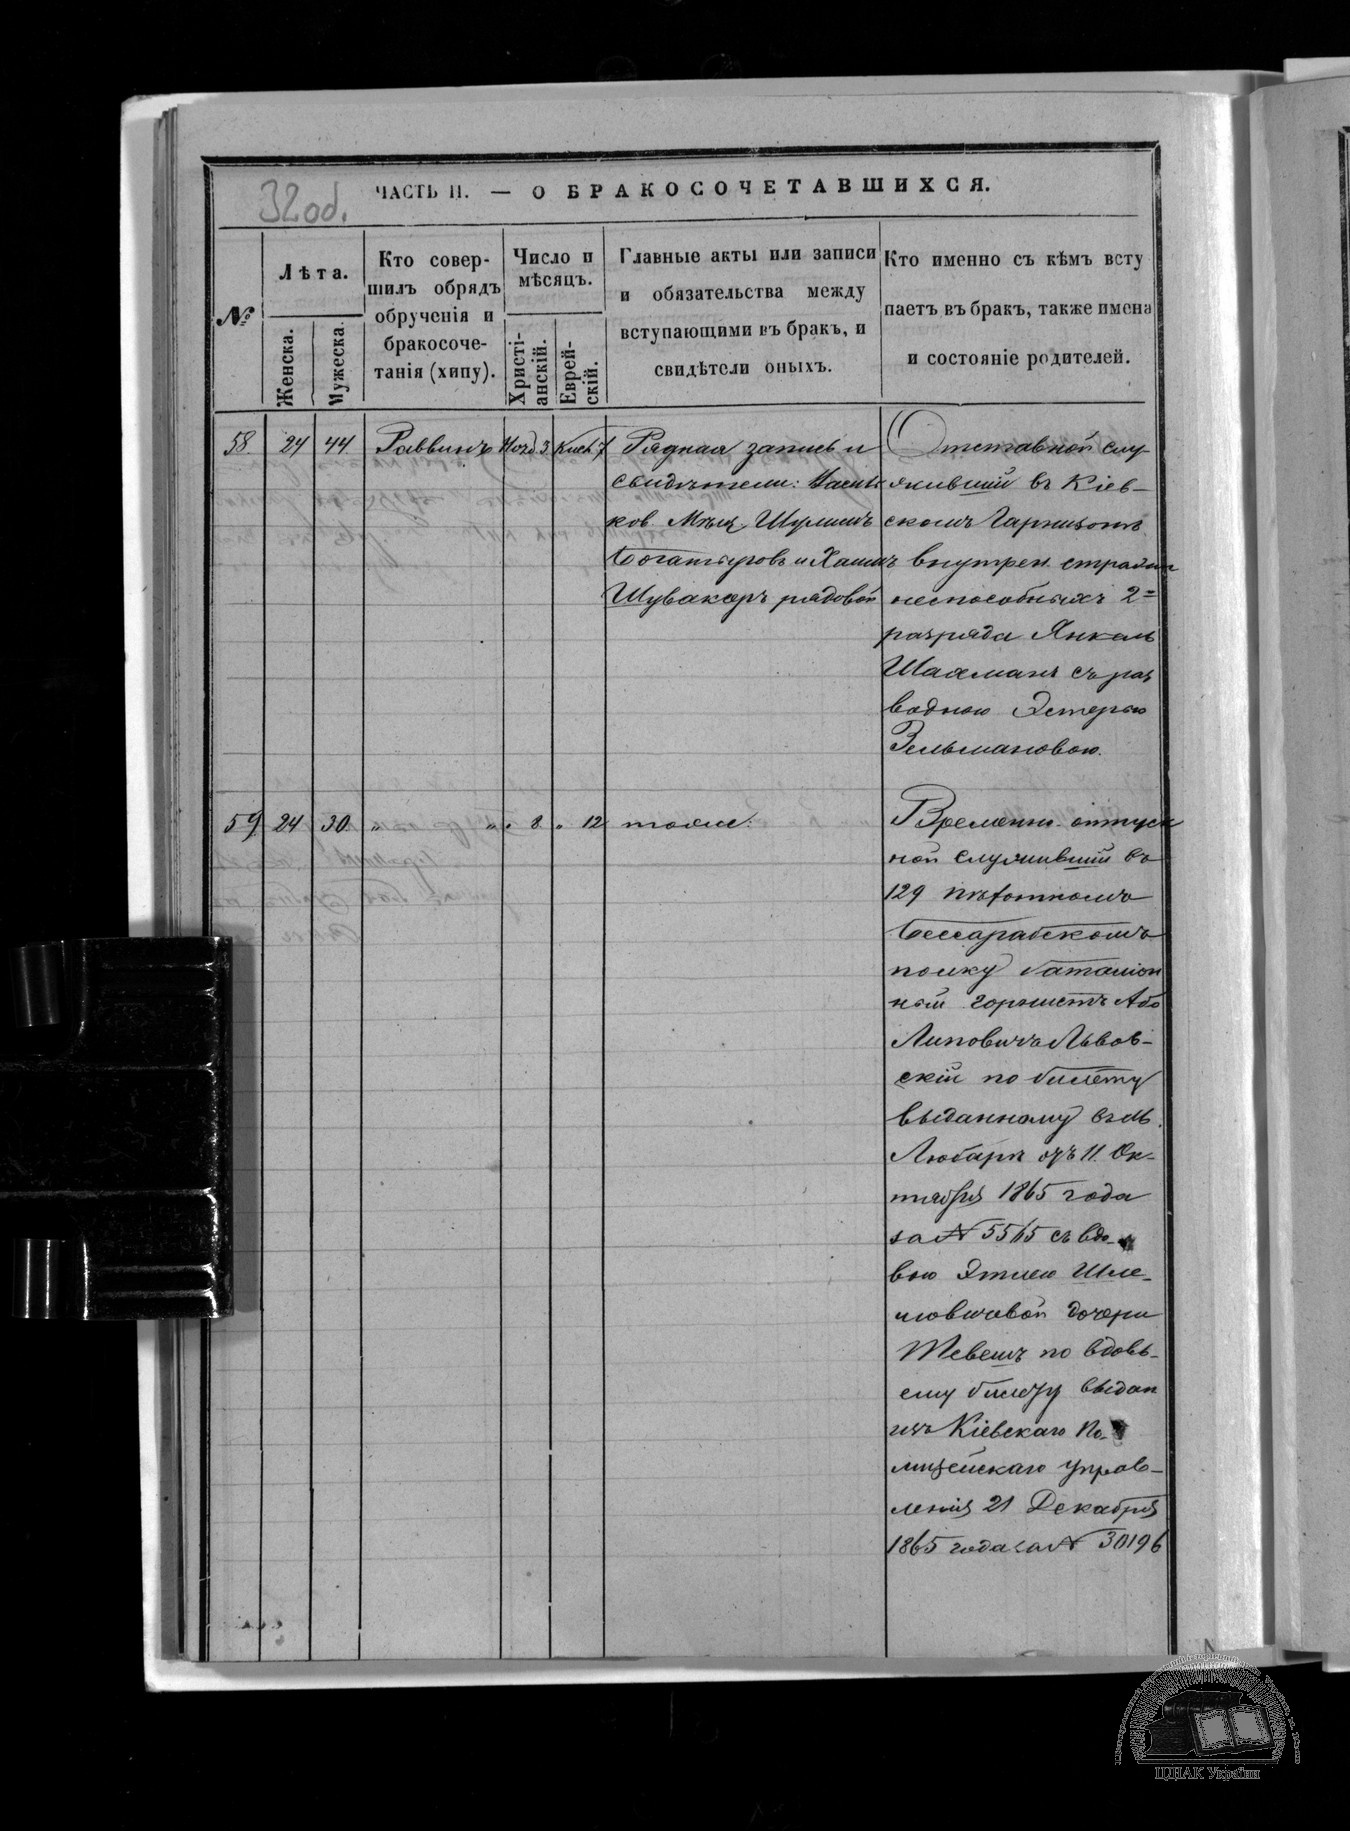 32 об.
ЧАСТЬ II. — О БРАКОСОЧЕТАВШИХСЯ.
№
Лѣта.
Женска.
Мужеска.
Кто совер-
шилъ обрядъ
обрученія и
бракосоче-
танія (хипу).
Число и
мѣсяцъ.
Христі-
анскій.
Еврей-
скій.
Главные акты или записи
и обязательства между
вступающими въ бракъ, и
свидѣтели оныхъ.
Кто именно съ кѣмъ всту
паетъ въ бракъ, также имена
и состояніе родителей.
58 24 44 Раввинъ 3 7
Рядная запись и
свидѣтели:
ков Мѣщ. Шулимъ
Богатыровъ и Хаимъ
Шувакеръ рядовой
Отставной слу-
жившій въ Кіев-
скомъ Гарнизонѣ
внутрен. стражи
неспособныхъ 2=
разряда Янкель
Шахманъ съ раз
водною Эстерою
Зельмановою.
59 24 30 " " " 8 " 12 тоже.
Временно отпуск
ной служившій въ
129 пѣхотномъ
Бессарабскомъ
полку баталіон
ный горнистъ Або
Липовичъ Львов-
скій по билету
выданному въ м.
Любарѣ отъ 11. Ок-
тября 1865 года
за № 5565 съ вдо-
вою Этлею Шле-
мовичевой дочери
Тевеля по вдовь-
ему билету выдан
изъ Кіевскаго По-
лицейскаго Управ-
ленія 21 Декабря
1865 года за № 30196
ЦДІАК України